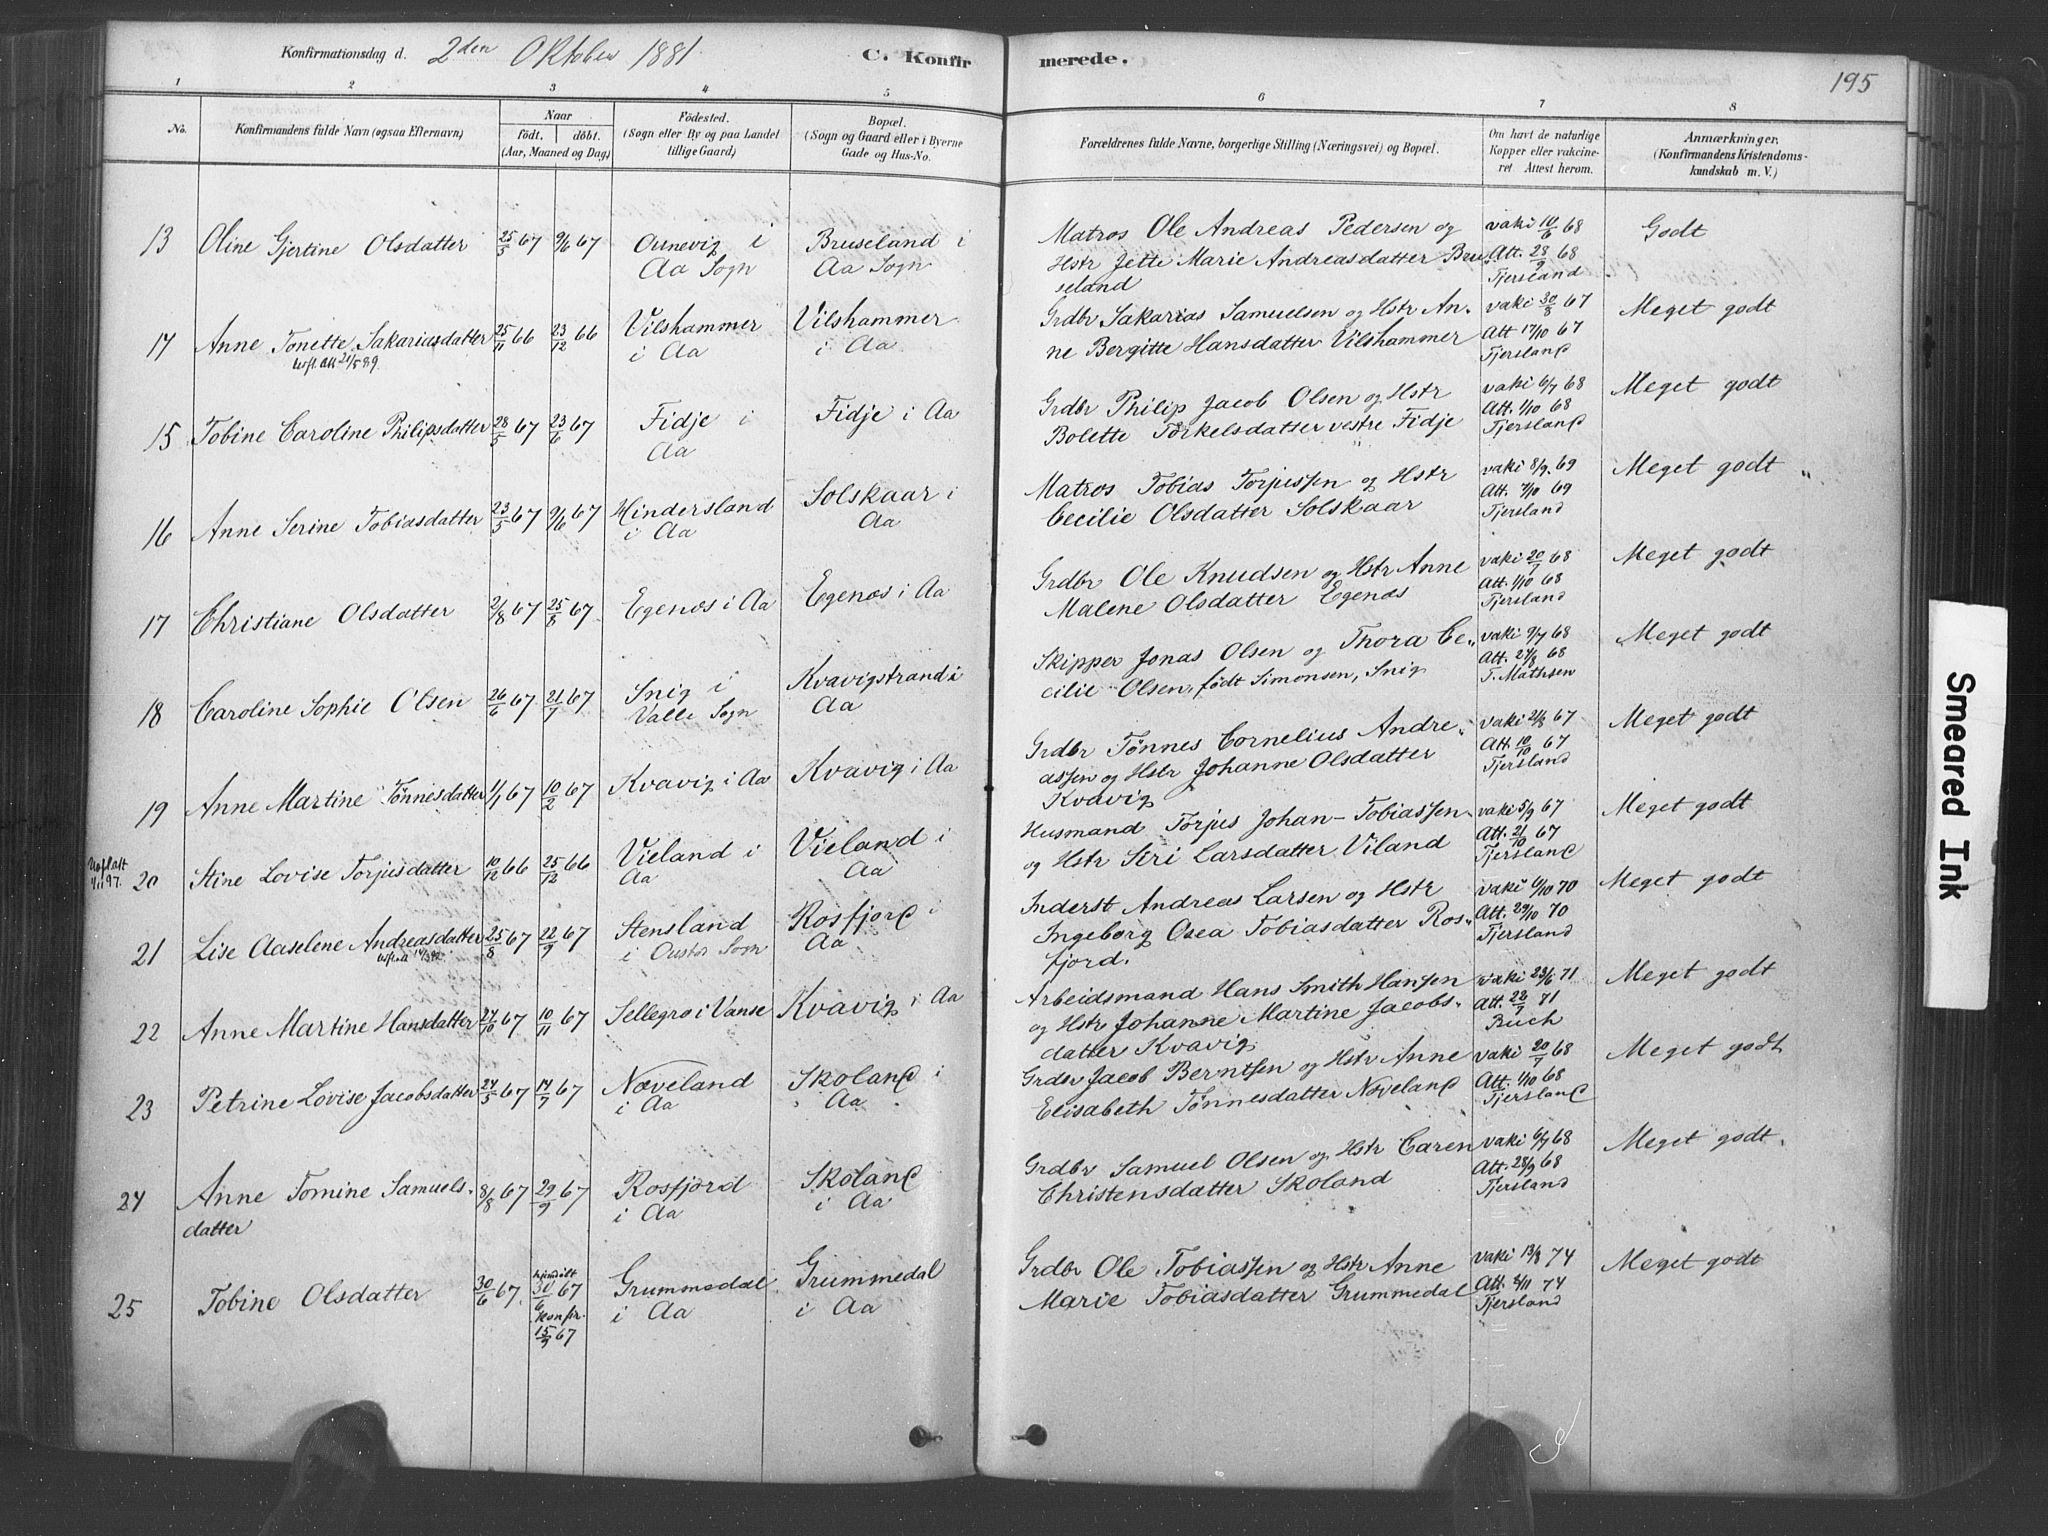 Konfirmationsdag d. 2den Oktober 1881.
C. Konfirmerede.
195
1 2 3 4 5 6 7 8
No.
Konfirmandens fulde Navn (ogsaa Efternavn)
Naar
født. døbt.
(Aar, Maaned og Dag)
Fødested.
(Sogn eller By og paa Landet
tillige Gaard)
Bopæl.
(Sogn og Gaard eller i Byerne
Gade og Hus-No.
Forældrenes fulde Navne, borgerlige Stilling (Næringsvei) og Bopæl.
Om havt de naturlige
Kopper eller vakcine-
ret Attest herom.
Anmærkninger.
(Konfirmandens Kristendoms-
kundskab m. V.)
13 Oline Gjertine Olsdatter 25/5 67 9/6 67
Ounevig i
Aa Sogn
Bruseland i
Aa Sogn
Matros Ole Andreas Pedersen og
Hstr Jette Marie Andreasdatter Bru-
seland
vaki 10/6 68
Att. 28/9 68
Tjersland
Godt
17 Anne Tonette Sakariasdatter 25/11 66 23/12 66
Utfl. Att 21/5 89
Vilshammer
i Aa
Vilshammer
i Aa
Grdbr Sakarias Samuelsen og Hstr An-
ne Bergitte Hansdatter Vilshammer
vaki 30/8 67
Att 17/10 67
Tjersland
Meget godt
15 Tobine Caroline Philipsdatter 28/5 67 23/6 67
Fidje i
Aa
Fidje i Aa
Grdbr Philip Jacob Olsen og Hstr
Bolette Torkelsdatter vestre Fidje
vaki 6/7 68
Att. 1/10 68
Tjersland
Meget godt
16 Anne Serine Tobiasdatter 23/5 67 9/6 67
Hindersland
i Aa
Solskaar i
Aa
Matros Tobias Torjussen og Hstr
Cecilie Olsdatter Solskaar
vaki 8/9 69
Att. 7/10 69
Tjersland
Meget godt "
17 Christiane Olsdatter 2/8 67 25/8 67
Egenæs i Aa
Egenæs i Aa
Grdbr Ole Knudsen og Hstr Anne
Malene Olsdatter Egenæs
vaki 20/7 68
Att. 1/10 68
Tjersland
Meget godt
18 Caroline Sophie Olsen 26/6 67 21/7 67
Snig i
Valle Sogn
Kvavigstrand i
Aa
Skipper Jonas Olsen og Thora Ce-
cilie Olsen, født Simonsen, Snig
vaki 9/7 68
Att. 27/8 68
T. Mathsen
Meget godt
19 Anne Martine Tønnesdatter 1/1 67 10/2 67
Kvavig i Aa
Kvavig i Aa
Grdbr Tønnes Cornelius Andre-
assen og Hstr Johanne Olsdatter
Kvavig
vaki 21/8 67
Att. 10/10 67
Tjersland
Meget godt
Utfl att
4/11 97.
20 Stine Lovise Torjusdatter 10/12 66 25/12 66
Vieland i
Aa
Vieland i
Aa
Husmand Torjus Johan Tobiassen
og Hstr Siri Larsdatter Viland
vaki 5/9 67
Att. 21/10 67
Tjersland
Meget godt
21 Lise Aaselene Andreasdatter 25/8 67 22/9 67
Stensland
i Oustad Sogn
Rosfjord i
Aa
Inderst Andreas Larsen og Hstr
Ingeborg Osea Tobiasdatter Ros-
fjord.
vaki 6/10 70
Att. 29/10 70
Tjersland
Meget godt
22 Anne Martine Hansdatter 27/10 67 10/11 67
Sellegro i Vanse
Kvavig i Aa
Arbeidsmand Hans Smith Hansen
og Hstr Johanne Martine Jacobs-
datter Kvavig
vaki 23/6 71
Att. 22/7 71
Buch
Meget godt
23 Petrine Lovise Jacobsdatter 24/5 67 14/7 67
Næveland
i Aa
Skoland i
Aa
Grdbr Jacob Berntsen og Hstr Anne
Elisabeth Tønnesdatter Noveland
vaki 20/7 68
Att. 1/10 68
Tjersland
Meget godt
24 Anne Tomine Samuels-
datter 8/8 67 29/9 67
Rosfjord
i Aa
Skoland
i Aa
Grdbr Samuel Olsen og Hstr Caren
Christensdatter Skoland
vaki 6/7 68
Att. 28/9 68
Tjersland
Meget godt.
25 Tobine Olsdatter 30/6 67. hjemdøbt 30/6 67
Konfir.
15/9 67
Grummedal
i Aa
Grummedal
i Aa
Grdbr Ole Tobiassen og Hstr Anne
Marie Tobiasdatter Grummedal
vaki 13/8 74
Att. 8/11 74
Tjersland
Meget godt
Smeared Ink